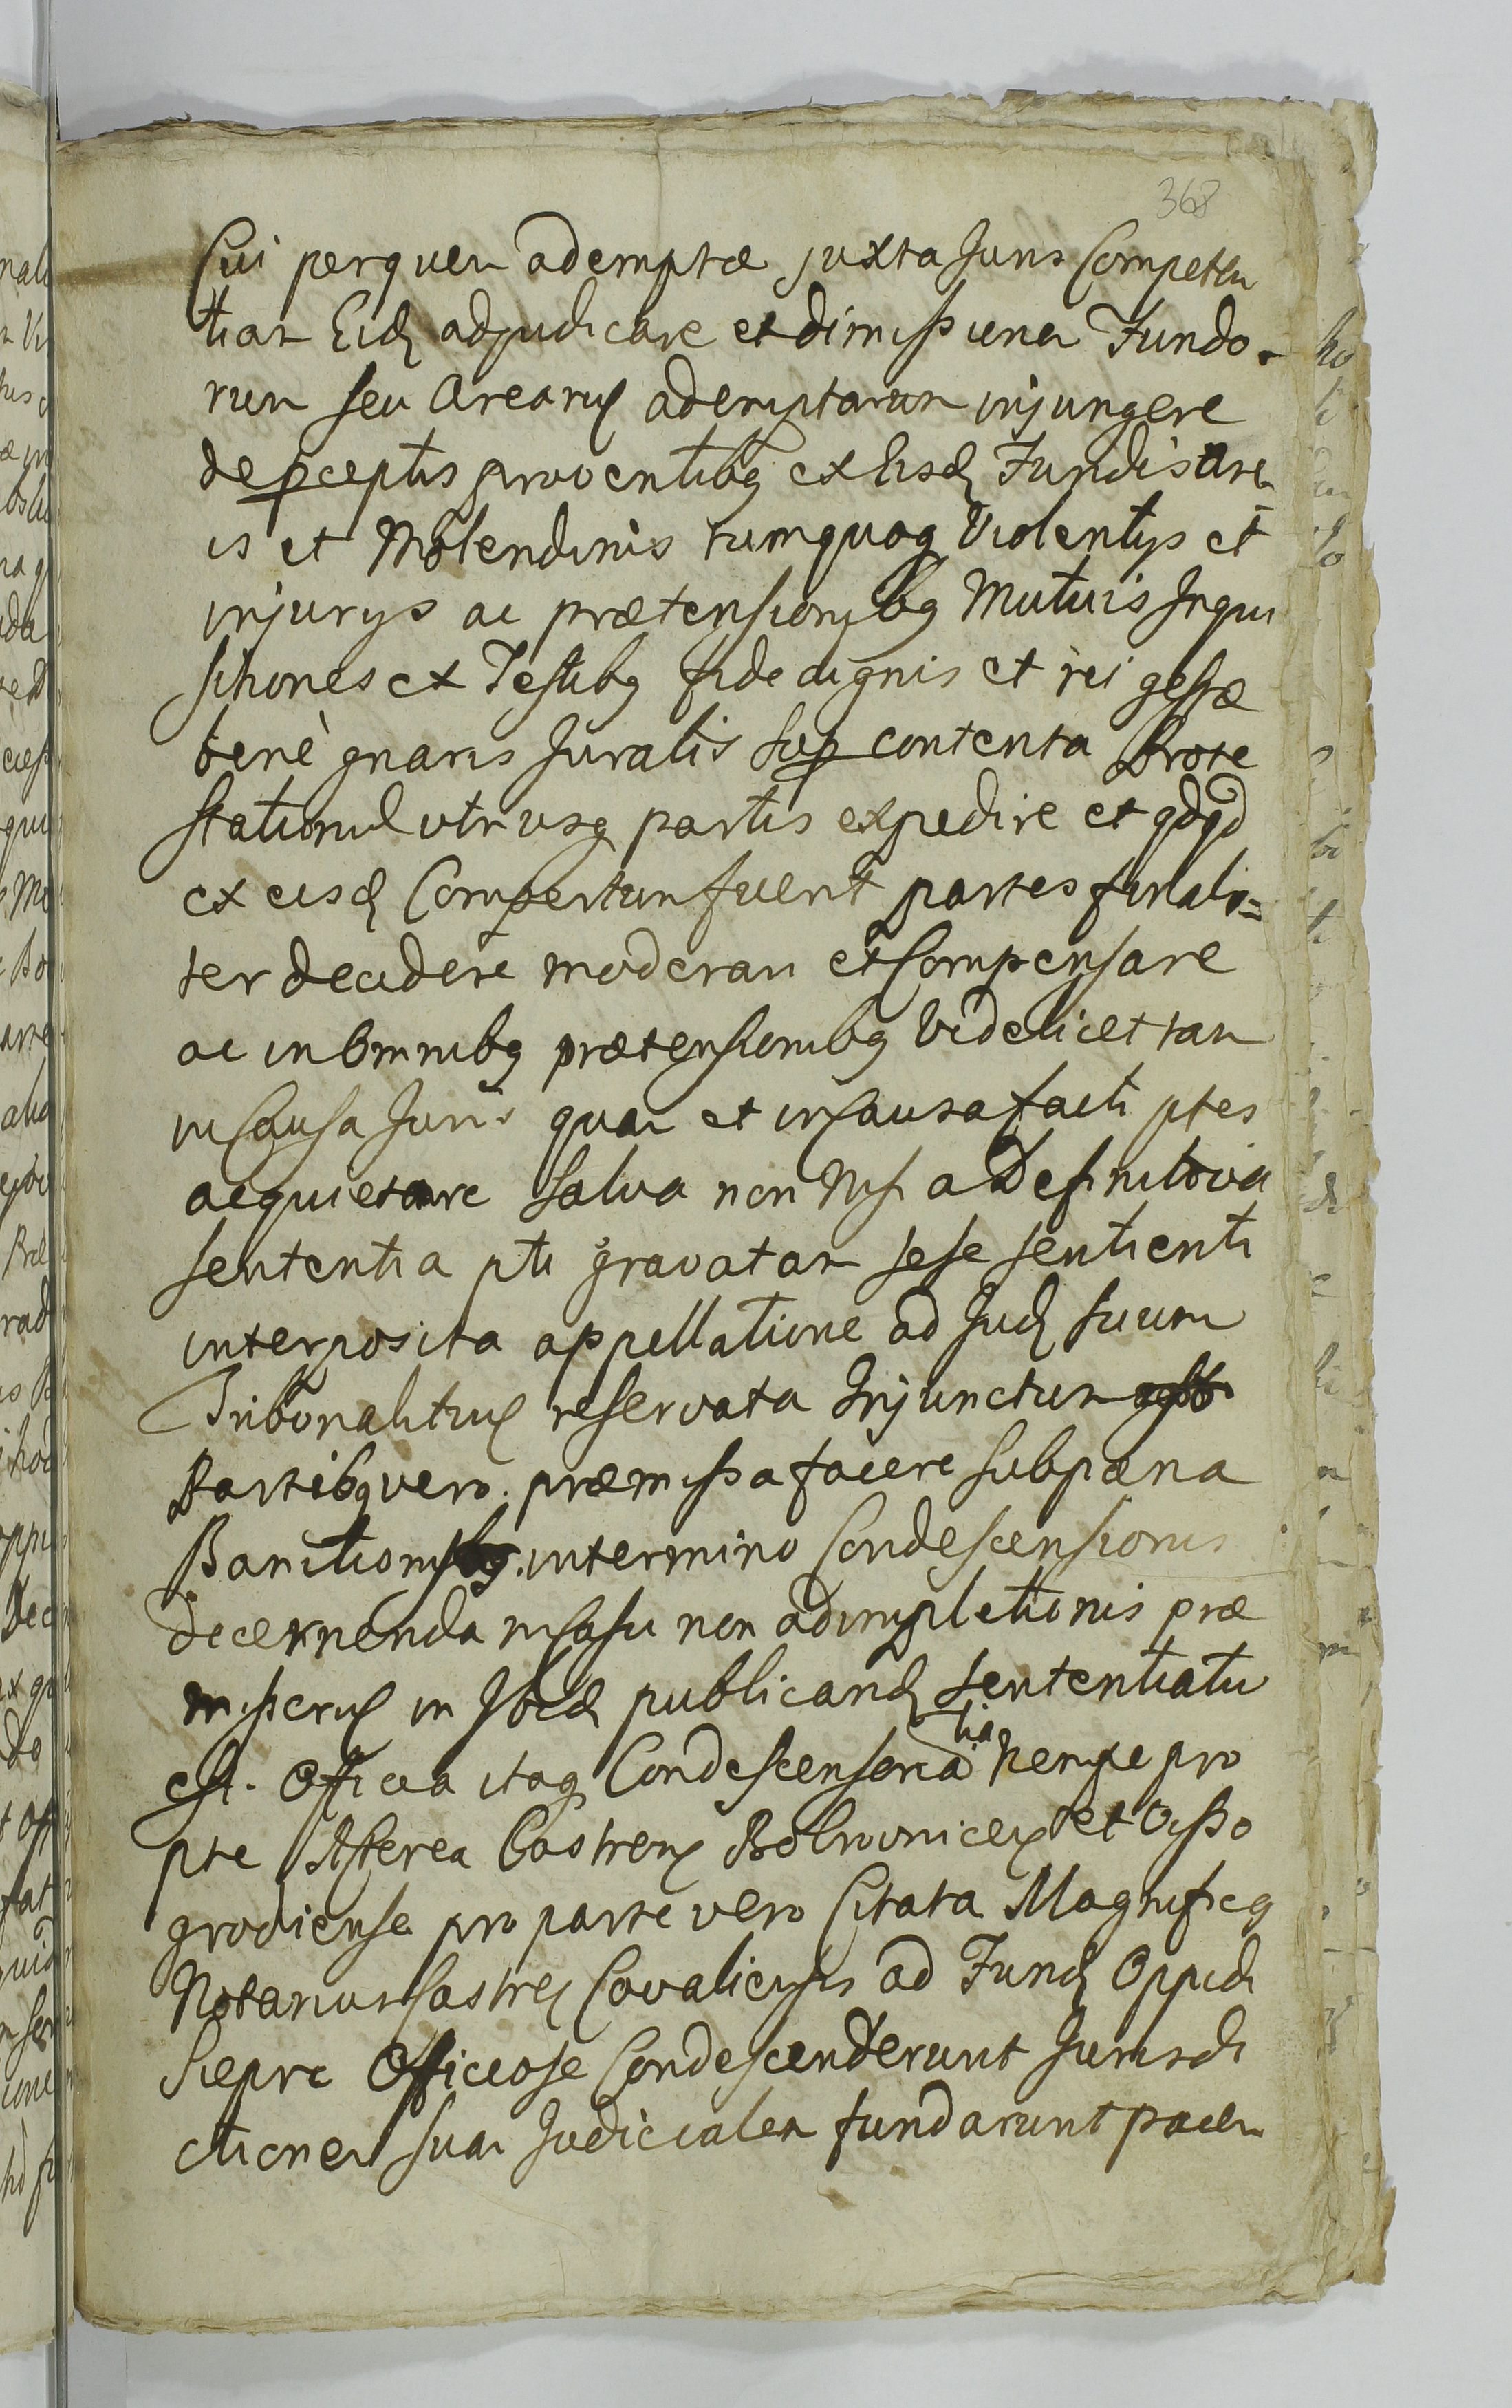 368
Cui perquem ademptæ juxta Juris Competen
tiam Eid adjudicare et dimissionem Fundo-
rum seu Arearum ademptarum injungere
de perceptis proventibq ex Eisd Fundis are
is et Molendinis tumquoq Violentijs et
injurijs ac prætensionibq Mutuis Inqui
sitiones ex Testibq fide dignis et rei gestæ
benè gnaris Juratis sup contenta Prote
stationum utriusq partis expedire et qdqd
ex eisd Compertum fuerit partes finali=
ter decidere moderari et Compensare
ac in Omnibq prætensionibq Videlicet tam
in Causa Juris quam et in Causa facti ptes
acquietare Salva non Nisi a Definitiva
sententia pti gravatam sese sentienti
interposita appellatione ad Jud suum
Tribunalitium reservata Injunctum
Partibq vero præmissa facere sub pæna
Banitionis in termino Condescensionis
decernenda in Casu non adimpletionis præ
missorum in Ibid publicand sententiatu
est. Officia itaq Condescensoria Nempe pro
pte Actorea Castren Bolrovnicen et Visso
grodiense pro parte vero Citata Magnificq
Notarius Castren Covaliensis ad Fund Oppidi
Siepre Officiose Condescenderunt Jurisdi
ctionem suam Judicialem fundarunt pacem